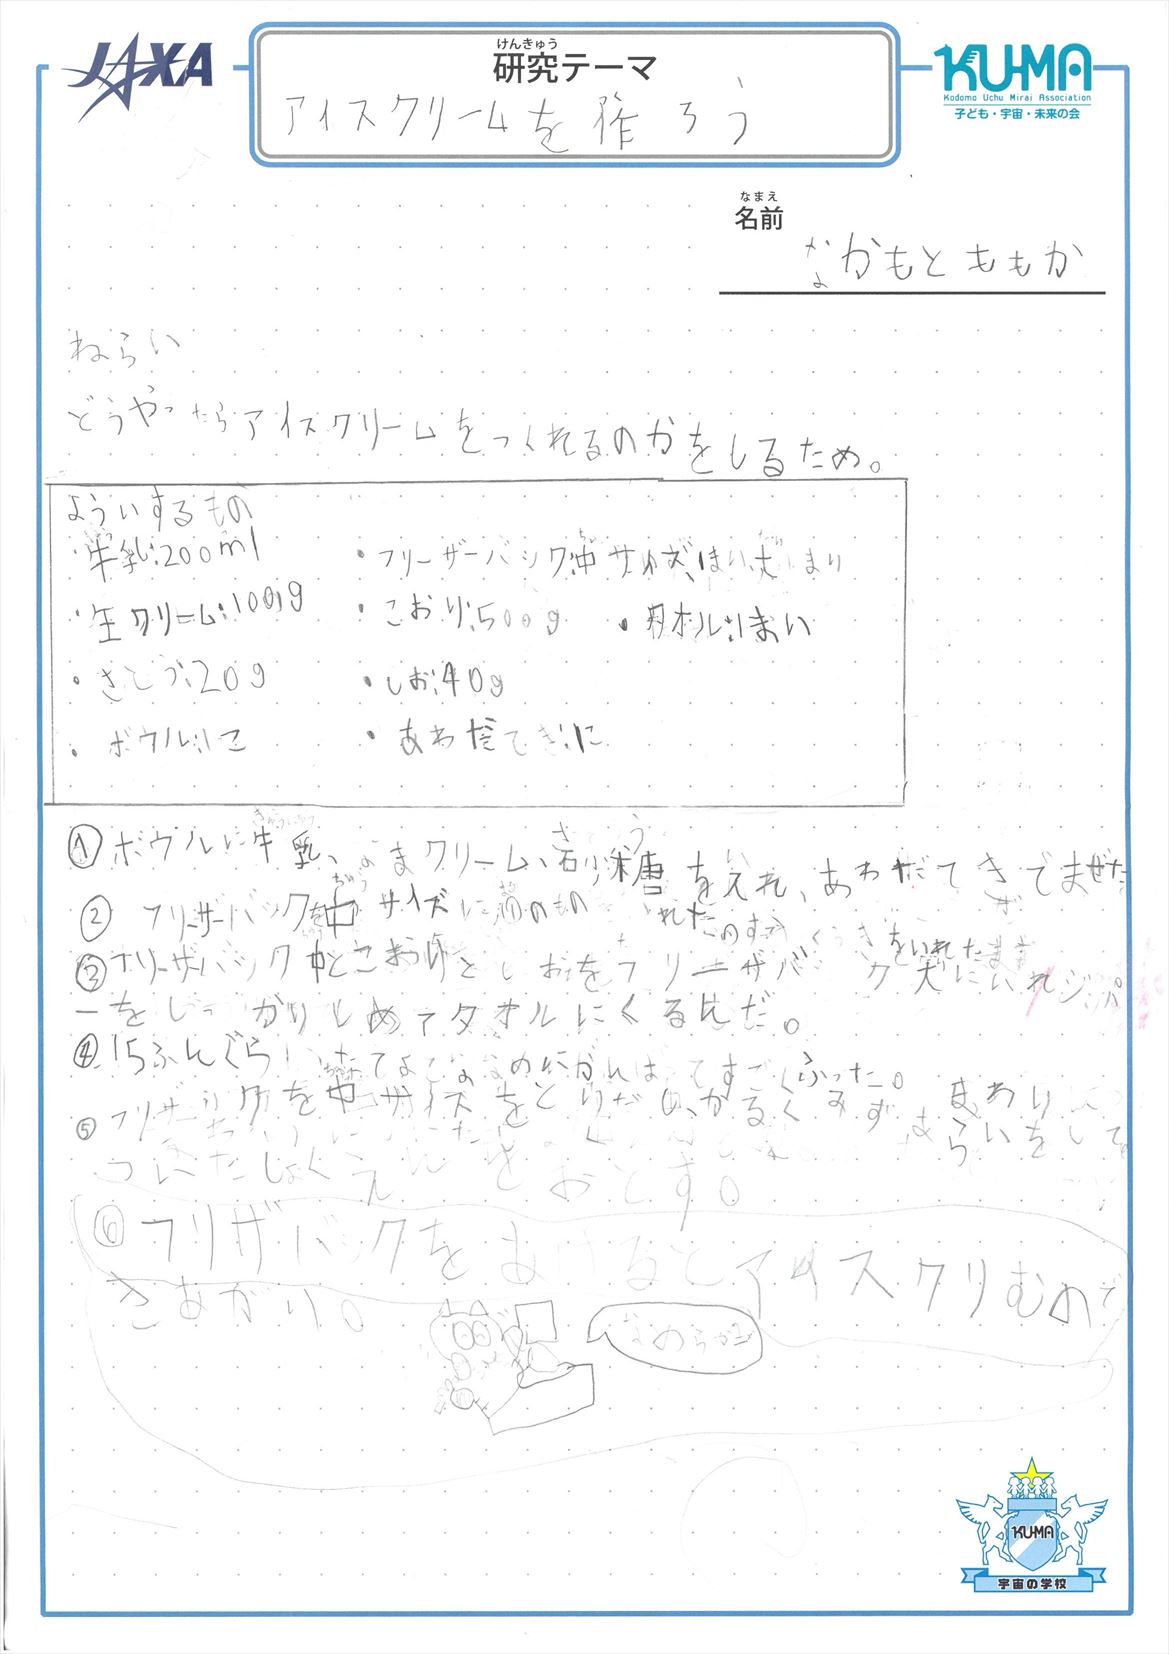 JAXA
けんきゅう
研究テーマ
アイスクリームを作ろう
KU-MA
Kodomo Uchu Mirai Association
子ども・宇宙・未来の会
なまえ
名前
なかもとももか
ねらい
どうやったらアイスクリームをつくれるのかをしるため。
よういするもの
・牛乳:200ml
・フリーザーバック中サイズ
・生クリーム:100g
・こおり:500g
・タオル:1まい
・さとう:20g
・しお:40g
・ボウル:1こ
・あわだてき:1こ
① ボウルに牛乳、なまクリーム、砂糖をいれ、あわだてきでまぜた
② フリーザーバック中サイズに①のもの
③ フリーザバック中とこおりとしおをフリーザバック大にいれジッパ
ーをしっかりしめてタオルにくるんだ。
④ 15ふんぐらい
がんばってすごくふった。
⑤ フリーザーバック中サイズをとりだし、かるくみずあらいをして
まわりに
ついたしょくえんをおとす。
⑥ フリザバックをあけるとアイスクリむので
きあがり。
なめらか
KU-MA
宇宙の学校